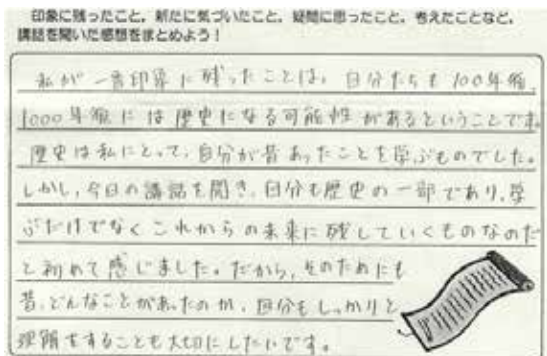 印象に残ったこと、新たに気づいたこと、疑問に思ったこと、考えたことなど、
講話を聞いた感想をまとめよう！
私が一番印象に残ったことは、自分たちも100年後、
1000年後には歴史になる可能性があるということです。
歴史は私にとって、自分が昔あったことを学ぶものでした。
しかし、今日の講話を聞き、自分も歴史の一部であり、学
ぶだけでなくこれからの未来に残していくものなのだ
と初めて感じました。だから、そのためにも
昔、どんなことがあったのか、自分もしっかりと
理解をすることも大切にしたいです。